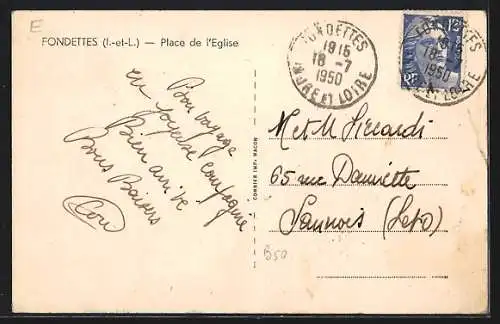 E
FONDETTES (I.-et-L.) — Place de l'Eglise
FONDETTES
1915
18 -7
1950
INDRE ET LOIRE
12F
RF
FONDETTES
18
1950
LOIRE
Bon voyage
en joyeuse compagnie
Bien arrivé
Bons Baisers
COMBIER IMP. MACON
M et M
65 rue Damiette
Sannois (S et O)
B50